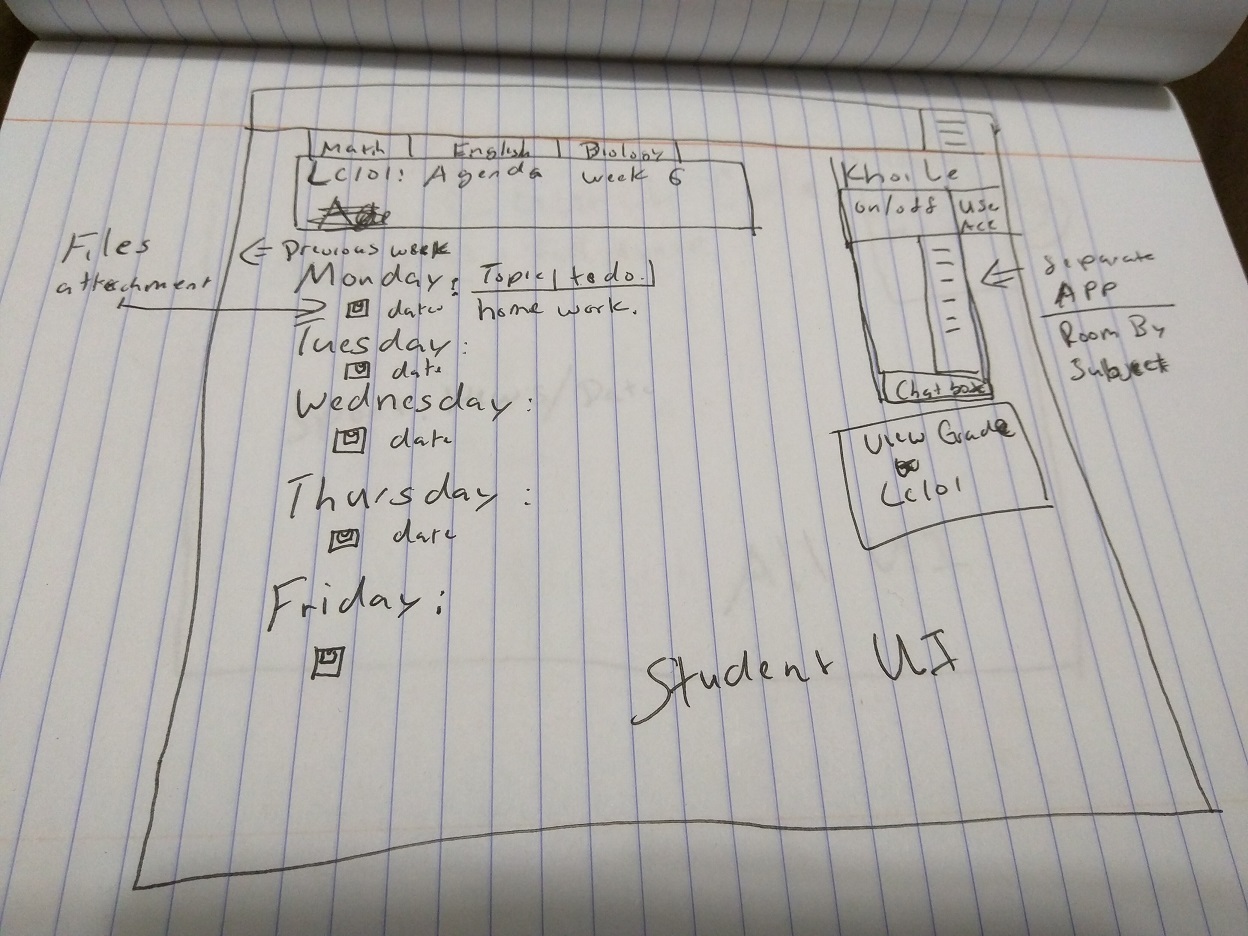 Math English Biology
Lc101: Agenda week 6
Files
attachment
Previous week
Monday: Topic | to do.
date home work.
Tuesday:
date
Wednesday:
date
Thursday:
date
Friday:
Khoi Le
on/off
Chat box
Separate
APP
Room By
Subject
View Grade
Lc101
Student UI